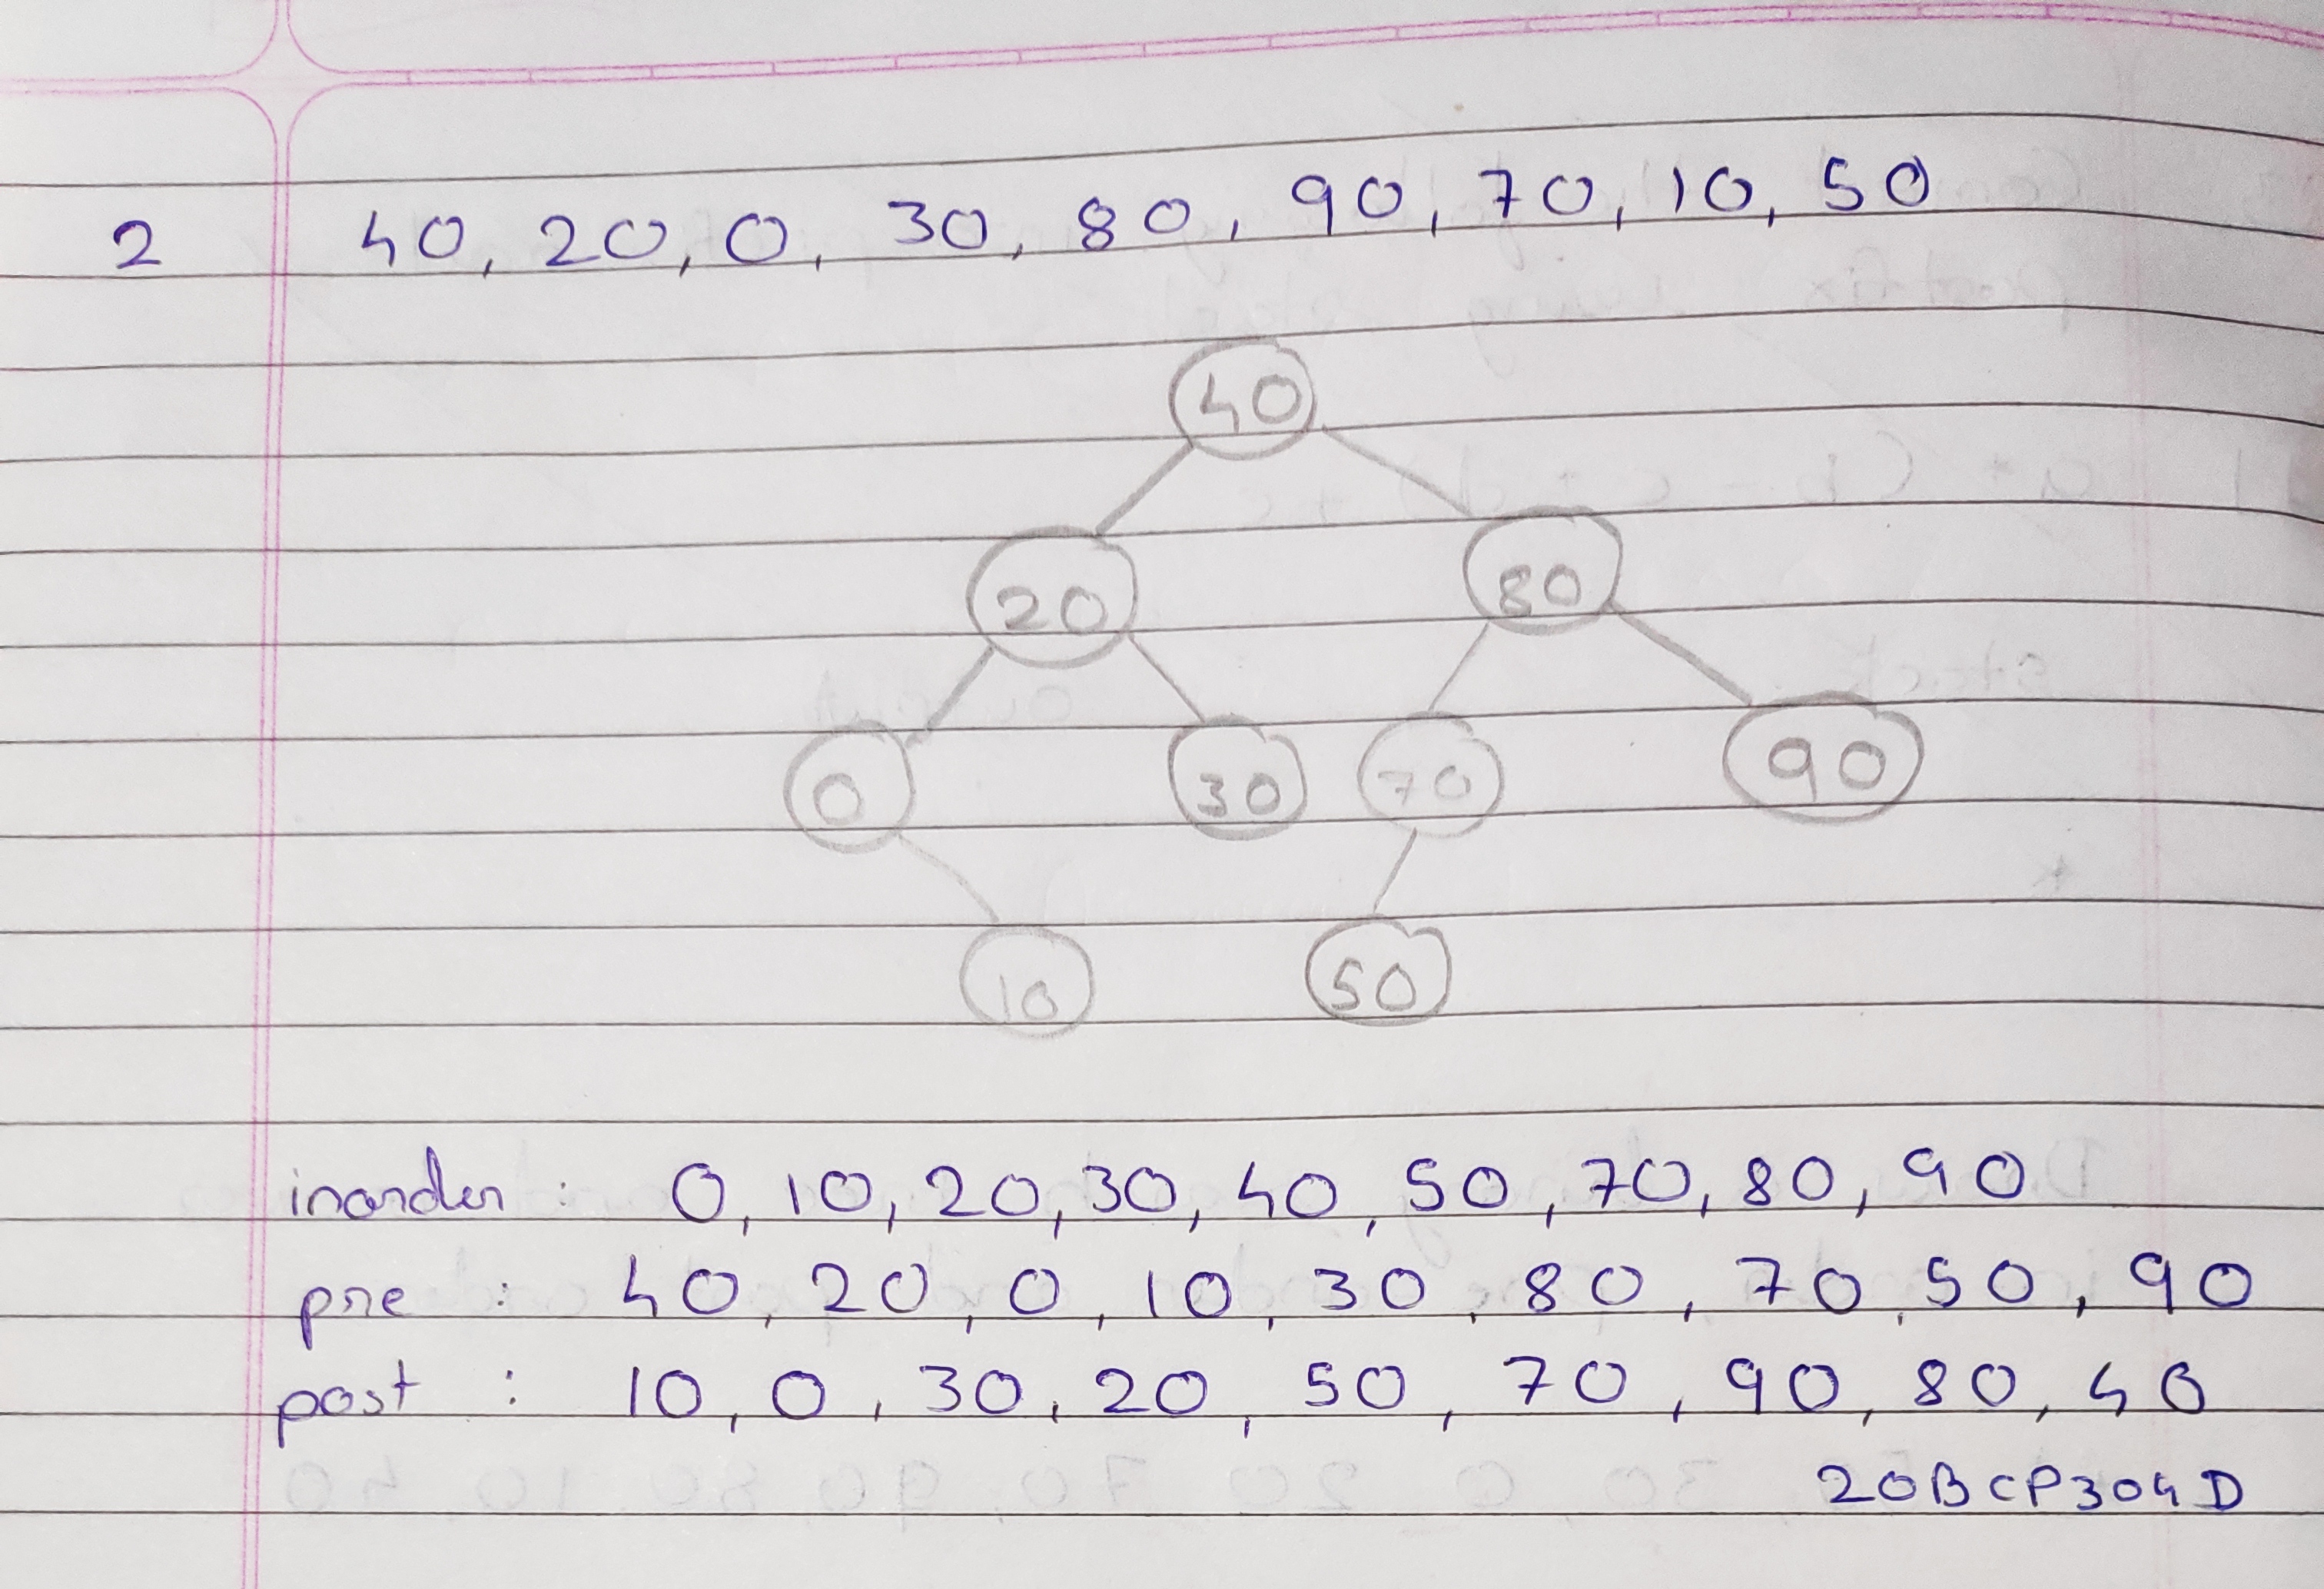 2 40, 20, 0, 30, 80, 90, 70, 10, 50
40
20 80
0 30 70 90
10 50
inorder : 0, 10, 20, 30, 40, 50, 70, 80, 90
pre : 40, 20, 0, 10, 30, 80, 70, 50, 90
post : 10, 0, 30, 20, 50, 70, 90, 80, 40
20BCP304D